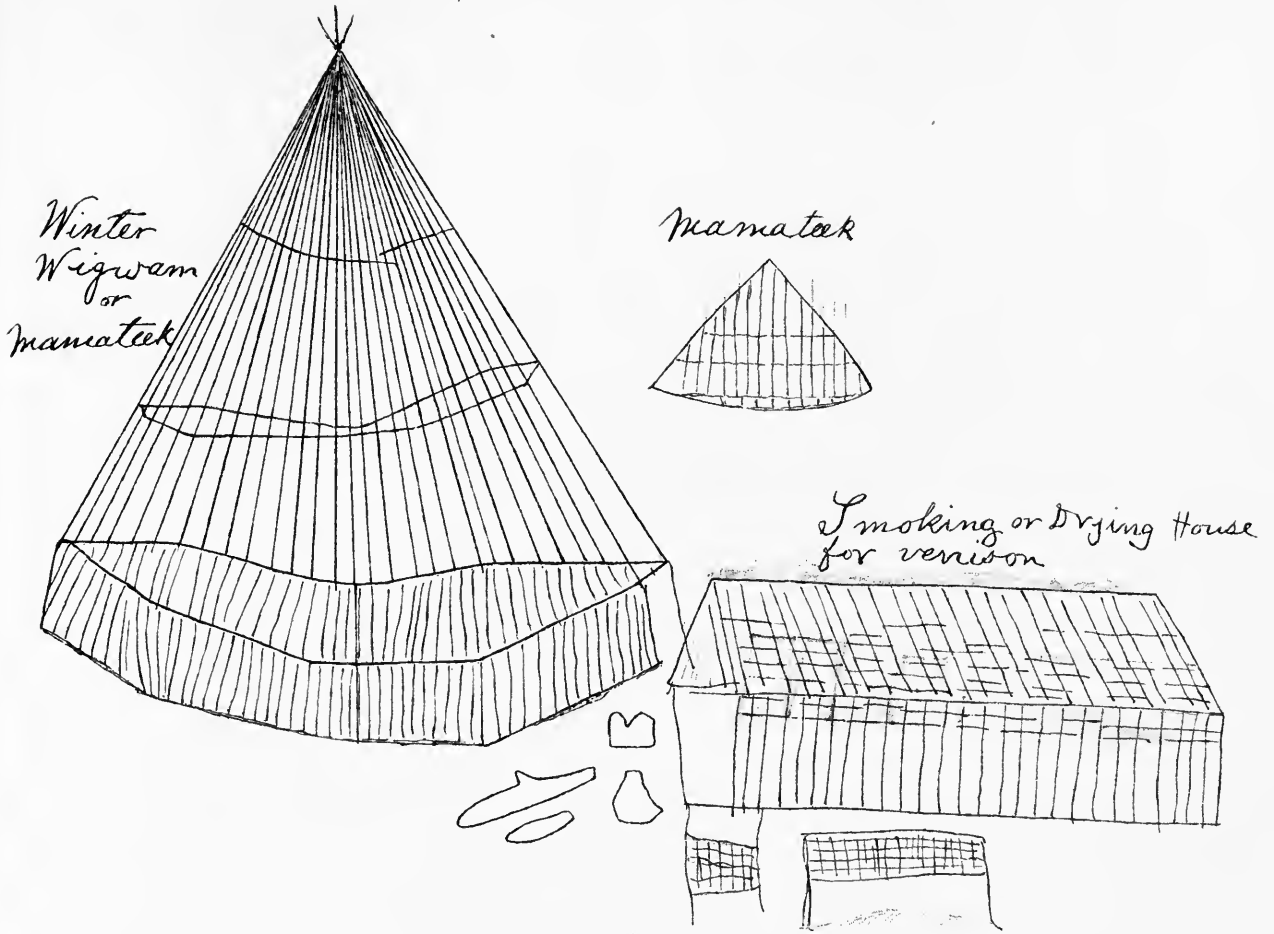 Winter
Wigwam
or
Mamateek
Mamateek
Smoking or Drying House
for venison